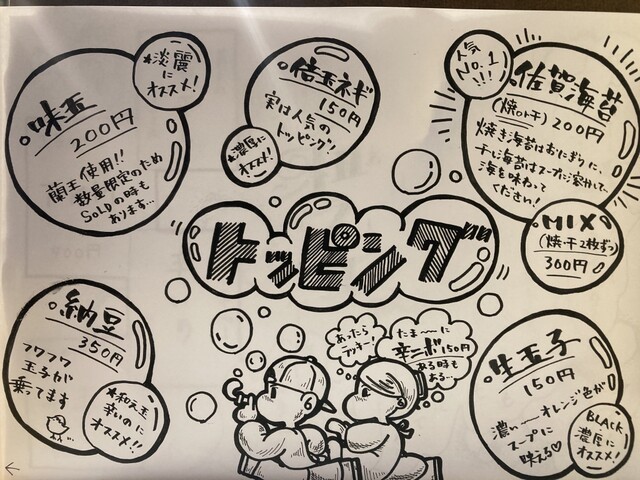 味玉
200円
蘭王使用!!
数量限定のため
SoLDの時も
あります…
★淡麗
にオススメ!
倍玉ネギ
150円
実は人気の
トッピング!
★濃厚に
オススメ!
人気
No.1
!!!
佐賀海苔
(焼or干)200円
焼き海苔はおにぎりに、
干し海苔はスープに溶かして
海を味わって
ください!
MIX
(焼・干2枚ずつ)
300円
トッピング
納豆
350円
フワフワ
玉子が
乗ってます
★和え玉
辛いのに
オススメ!!
あったら
ラッキー!
たま〜に
辛ニボ150円
ある時も
ある…
生玉子
150円
濃い〜オレンジ色が
スープに
映える♡
BLACK
濃厚に
オススメ!
←